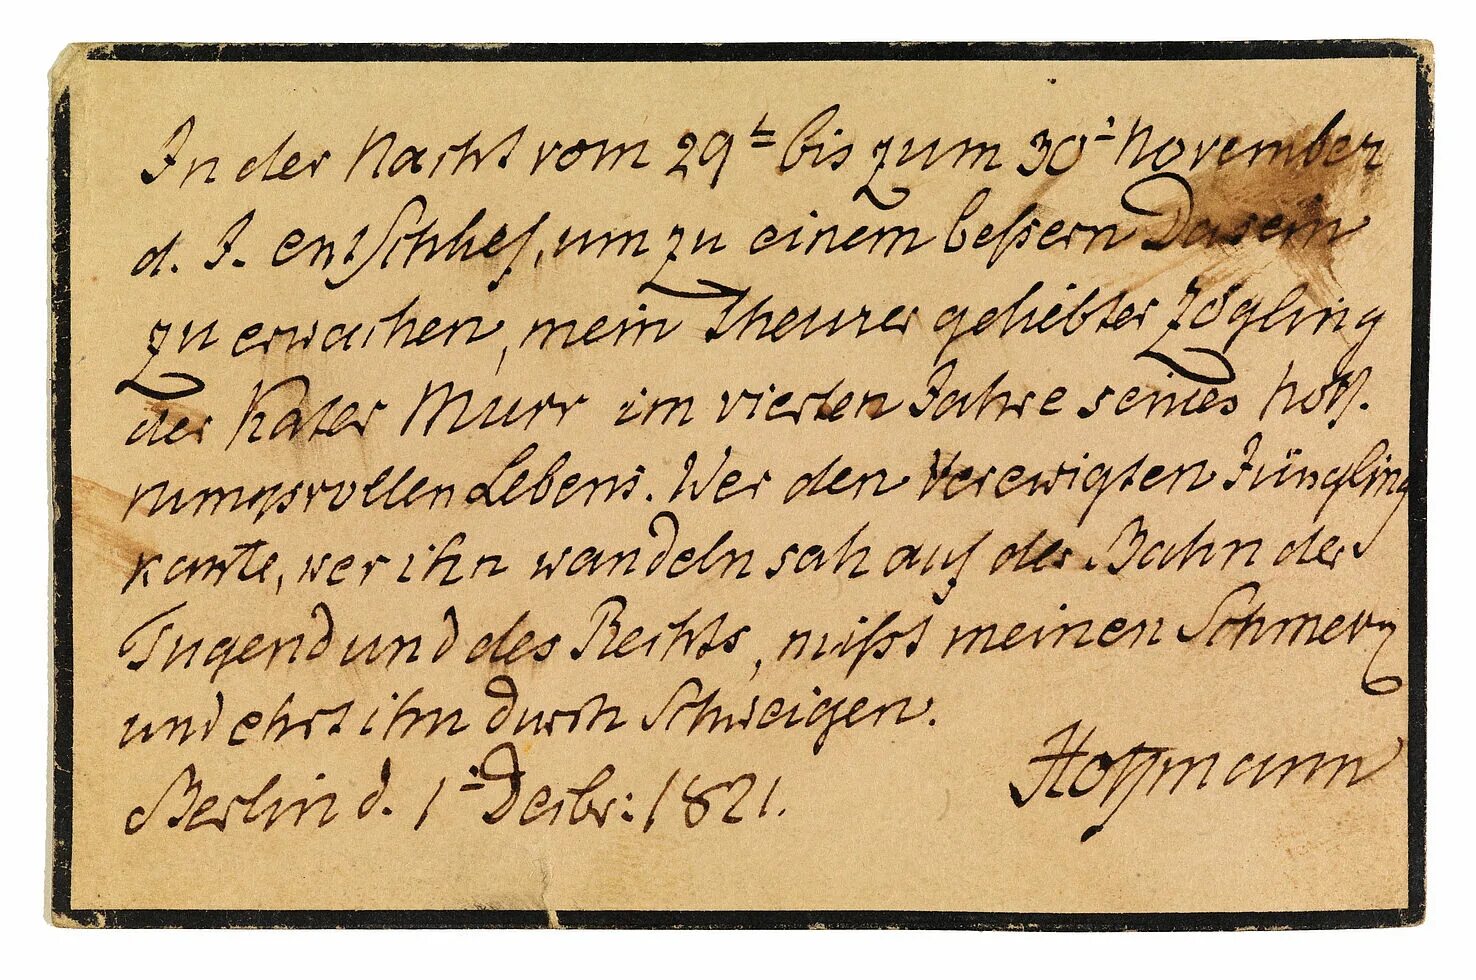 In der Nacht vom 29t bis zum 30t November
d. J. entschlief, um zu einem beßern Dasein
zu erwachen, mein theurer geliebter Zögling
der Kater Murr im vierten Jahre seines hoff-
nungsvollen Lebens. Wer den Verewigten Jüngling
kannte, wer ihn wandeln sah auf der Bahn der
Tugend und des Rechts, mißt meinen Schmerz
und ehrt ihn durch Schweigen.
Berlin d. 1t Decbr: 1821.
Hoffmann